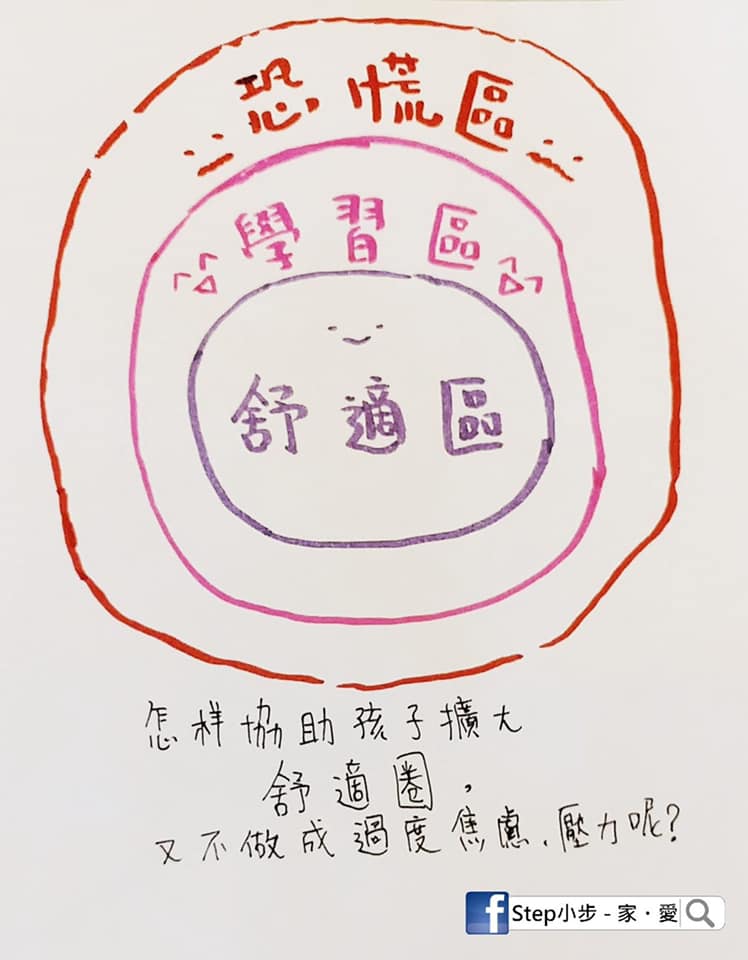 恐慌區
學習區
舒適區
怎样協助孩子擴大
舒適圈，
又不做成過度焦慮、壓力呢?
f Step小步 - 家・愛